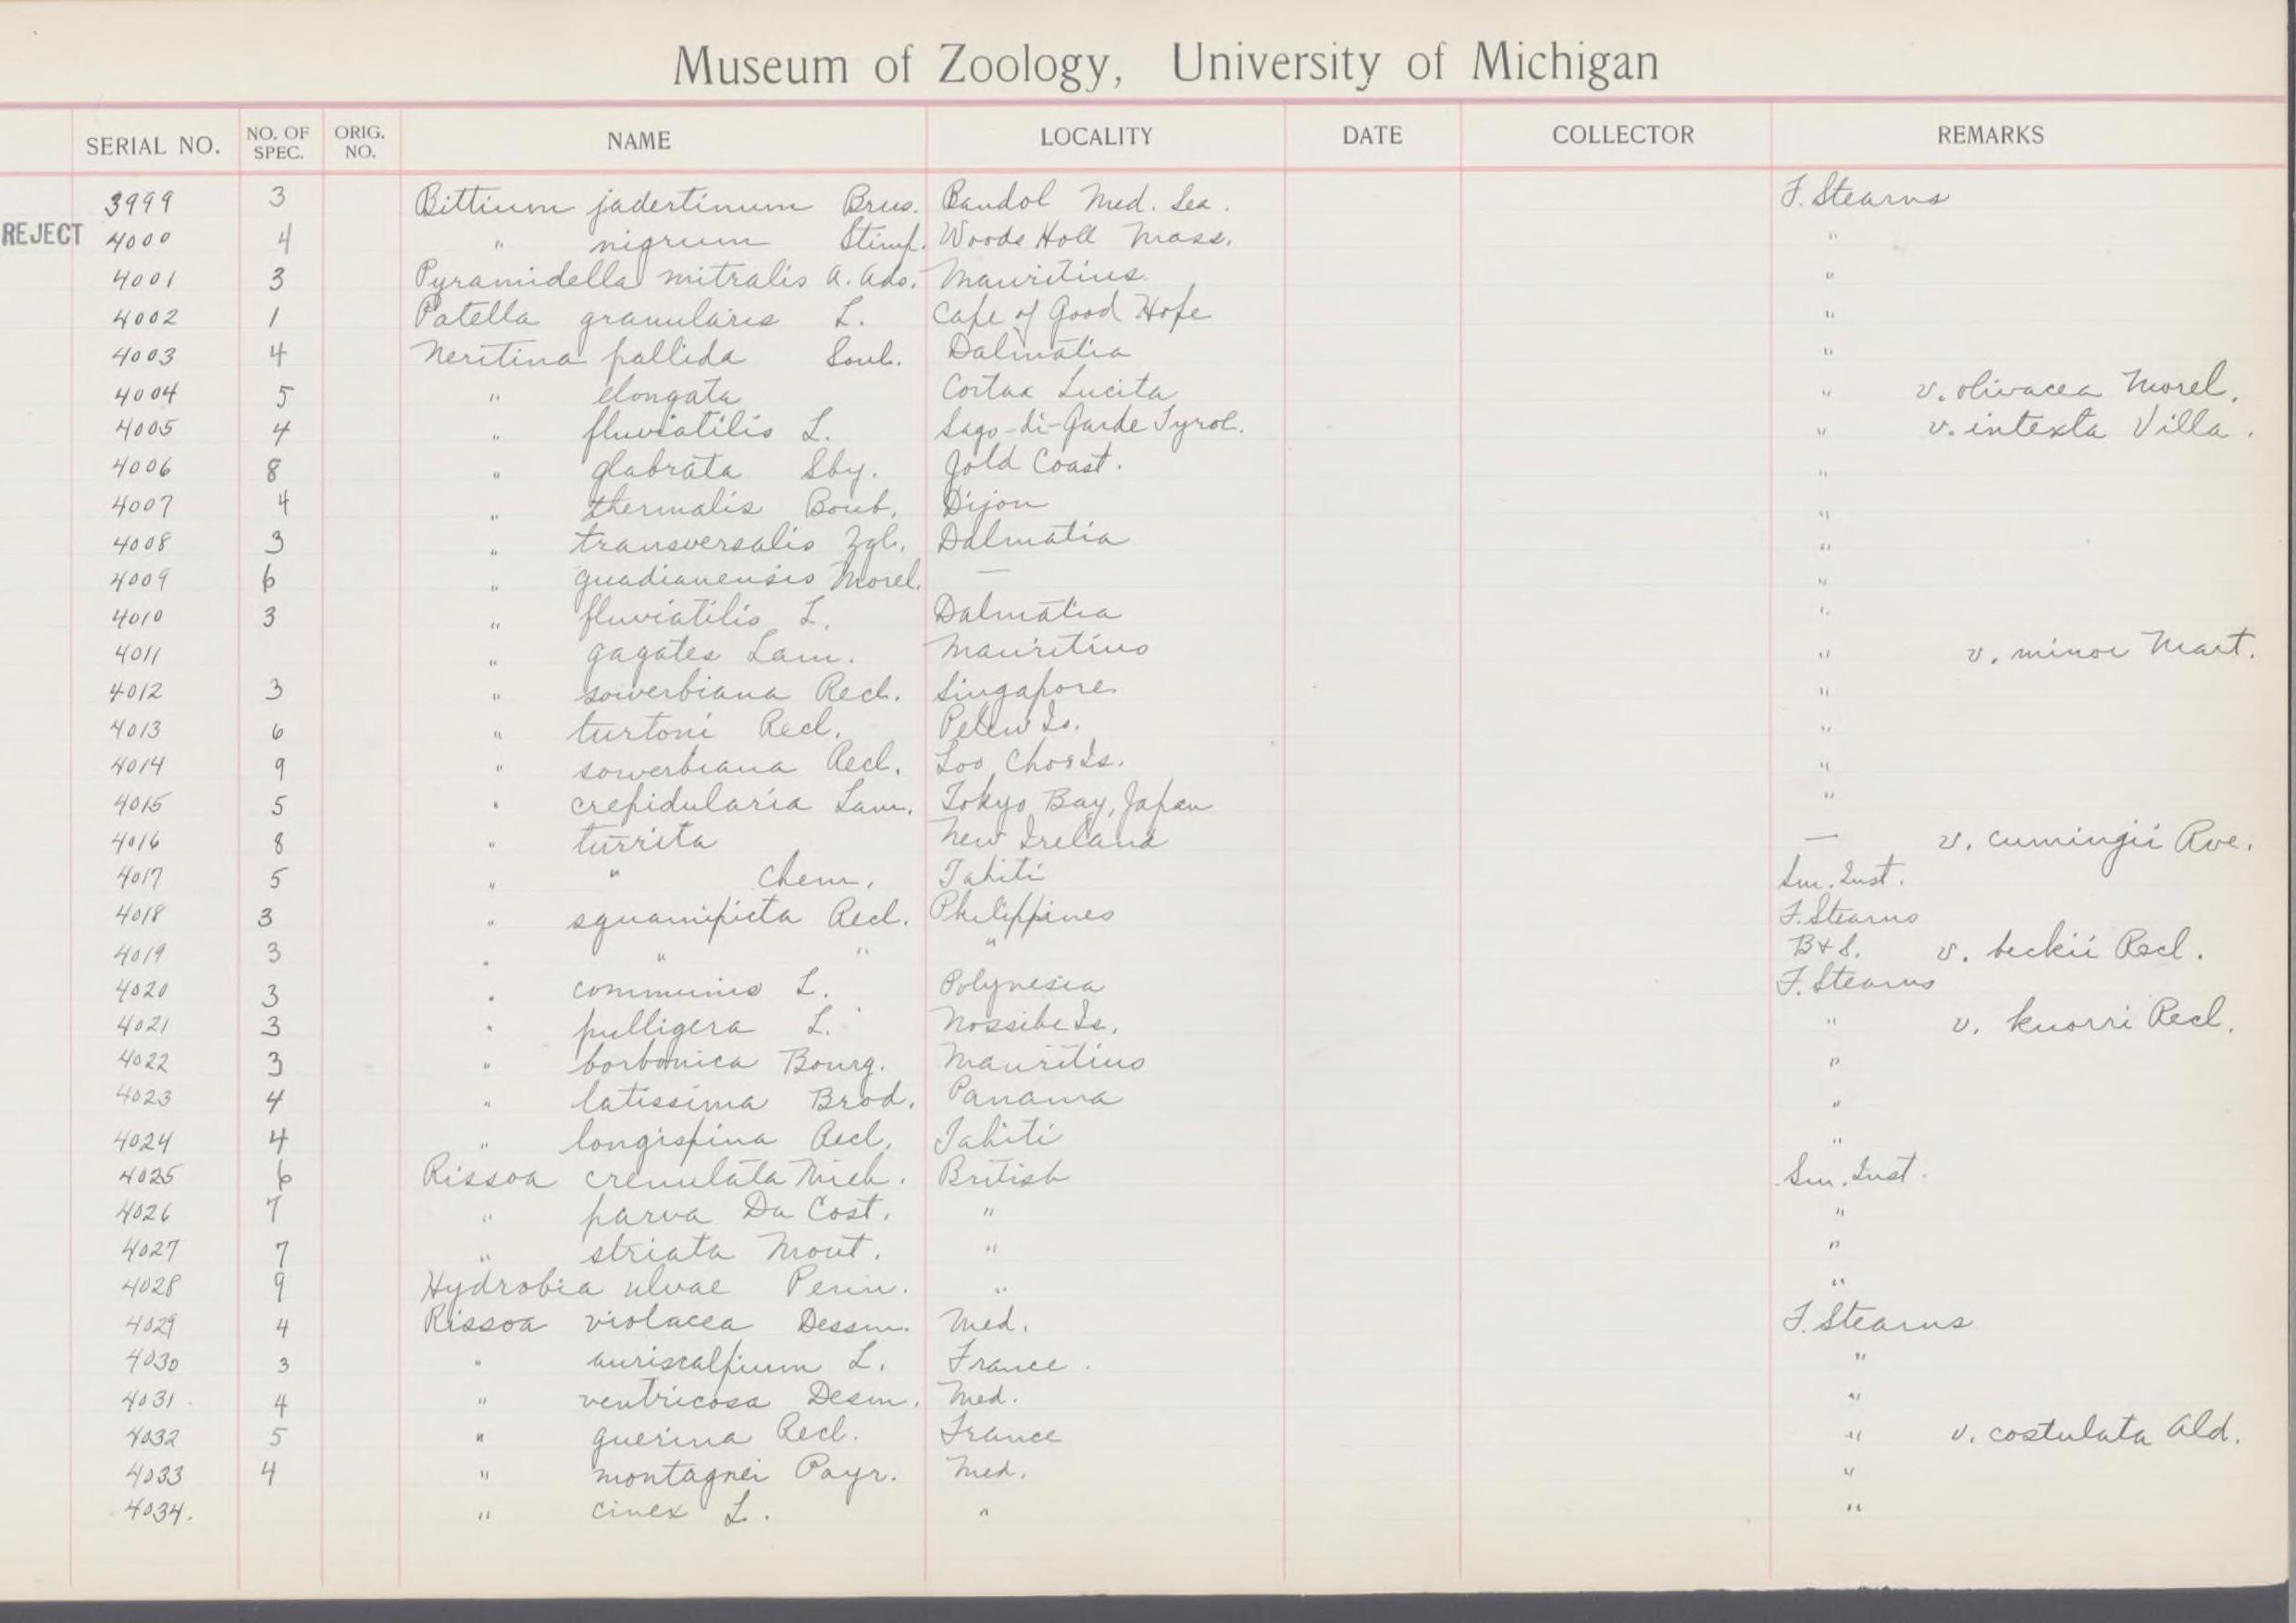 Museum of Zoology, University of Michigan
SERIAL NO. NO. OF SPEC. ORIG. NO. NAME LOCALITY DATE COLLECTOR REMARKS
3999 3 Bittium jadertinum Brus. Bandol Med. Sea. F. Stearns
REJECT 4000 4 " nigrum Stimp. Woods Holl Mass. "
4001 3 Pyramidella mitralis A. Ads. Mauritius. "
4002 1 Patella granularis L. Cape of Good Hope "
4003 4 Neritina pallida Soul. Dalmatia "
4004 5 " elongata Lucita " v. olivacea Morel.
4005 4 " fluviatilis L. Lago-di-Garde Tyrol. " v. intexta Villa.
4006 8 " glabrata Sby. Gold Coast. "
4007 4 " thermalis Boub. Dijon "
4008 3 " transversalis Zgl. Dalmatia "
4009 6 " guadianensis Morel. — "
4010 3 " fluviatilis L. Dalmatia "
4011 " gagates Lam. Mauritius " v. minor Mart.
4012 3 " sowerbiana Recl. Singapore "
4013 6 " turtoni Recl. Pelew Is. "
4014 9 " sowerbiana Recl. Loo Choo Is. "
4015 5 " crepidularia Lam. Tokyo Bay, Japan "
4016 8 " turrita New Ireland — v. cumingii Rve.
4017 5 " " Chem. Tahiti Sm. Inst.
4018 3 " squamipicta Recl. Philippines F. Stearns
4019 3 " " " " B & S. v. beckii Recl.
4020 3 " communis L. Polynesia F. Stearns
4021 3 " pulligera L. Nossibe Is. " v. knorri Recl.
4022 3 " borbonica Bourg. Mauritius "
4023 4 " latissima Brod. Panama "
4024 4 " longispina Recl. Tahiti "
4025 6 Rissoa crenulata Mich. British Sm. Inst.
4026 7 " parva Da Cost. " "
4027 7 " striata Mont. " "
4028 9 Hydrobia ulvae Penn. " "
4029 4 Rissoa violacea Dessm. Med. F. Stearns
4030 3 " auriscalpium L. France. "
4031 4 " ventricosa Desm. Med. "
4032 5 " guerina Recl. France " v. costulata Ald.
4033 4 " montagnei Payr. Med. "
4034. " cimex L. " "